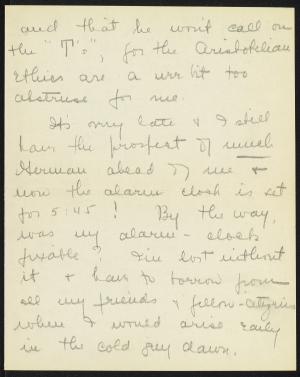 and that he won't call on
the "T's", for the Aristotelian
Ethics are a wee bit too
abstruse for me.
It's very late & I still
have the prospect of much
German ahead of me &
now the alarm clock is set
for 5:45! By the way,
was my alarm-clock
fixable? I'm lost without
it & have to borrow from
all my friends & fellow-citizens
when I would arise early
in the cold grey dawn.